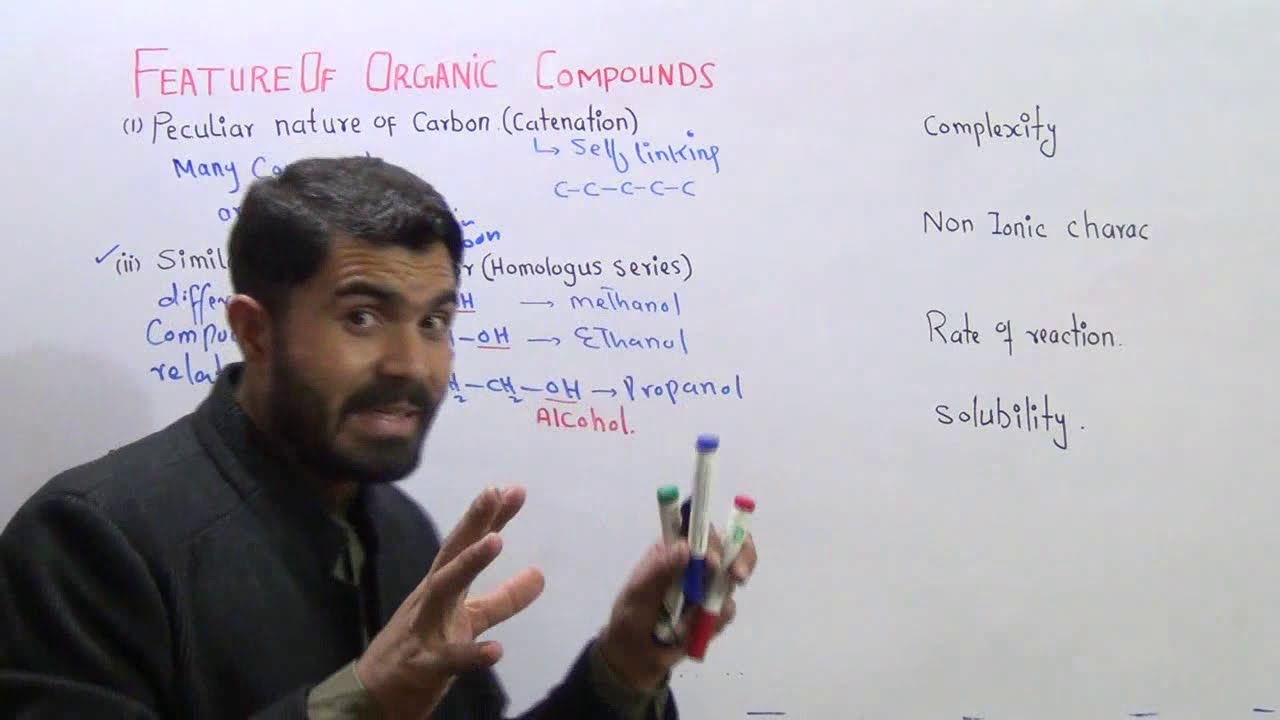 FEATURE OF ORGANIC COMPOUNDS
(i) Peculiar nature of Carbon. (Catenation)
↳ Self linking
Many
C-C-C-C-C
✓(ii) (Homologus series)
→ meThanol
-OH → EThanol
-CH2-OH → Propanol
Alcohol.
Complexity
Non Ionic charac
Rate of reaction.
Solubility.